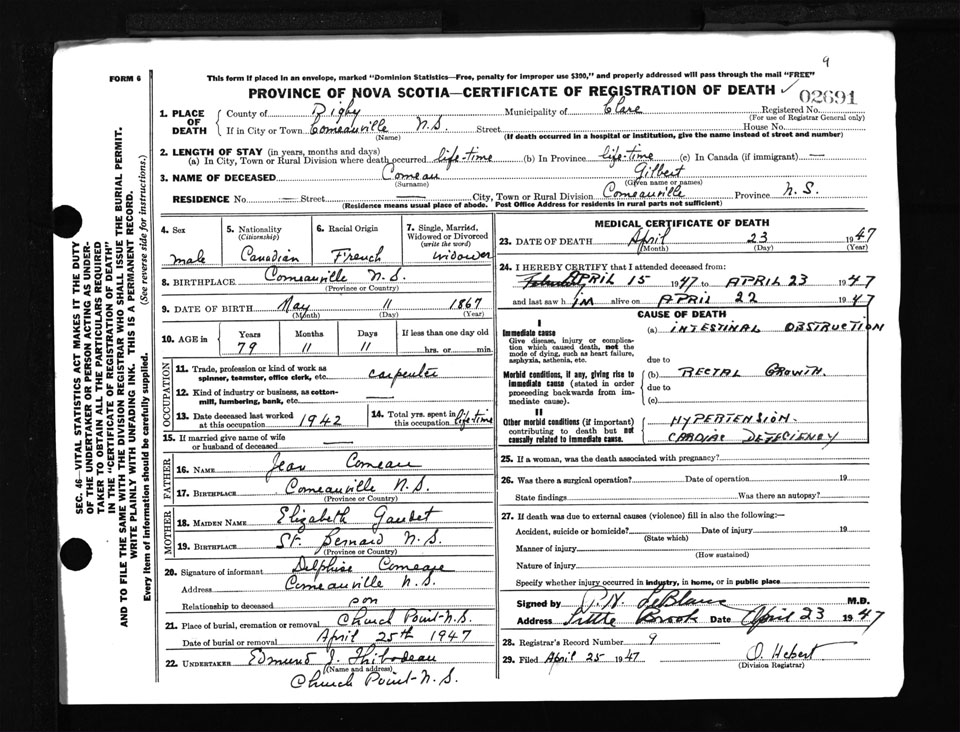 9
FORM 6
This form if placed in an envelope, marked "Dominion Statistics—Free, penalty for improper use $300," and properly addressed will pass through the mail "FREE"
PROVINCE OF NOVA SCOTIA—CERTIFICATE OF REGISTRATION OF DEATH
02691
1. PLACE OF DEATH
County of Digby Municipality of Clare Registered No.
(For use of Registrar General only)
If in City or Town Comeauville N.S. Street House No.
(Name) (If death occurred in a hospital or institution, give the name instead of street and number)
2. LENGTH OF STAY (in years, months and days)
(a) In City, Town or Rural Division where death occurred life-time (b) In Province life-time (c) In Canada (if immigrant) —
3. NAME OF DECEASED Comeau Gilbert
(Surname) (Given name or names)
RESIDENCE No. — Street — City, Town or Rural Division Comeauville Province N.S.
(Residence means usual place of abode. Post Office Address for residents in rural parts not sufficient)
4. Sex
male
5. Nationality
(Citizenship)
Canadian
6. Racial Origin
French
7. Single, Married,
Widowed or Divorced
(write the word)
widower
8. BIRTHPLACE Comeauville N.S.
(Province or Country)
9. DATE OF BIRTH May 11 1867
(Month) (Day) (Year)
10. AGE in
Years Months Days If less than one day old
79 11 11 hrs. or min.
OCCUPATION
11. Trade, profession or kind of work as
spinner, teamster, office clerk, etc. carpenter
12. Kind of industry or business, as cotton-
mill, lumbering, bank, etc. —
13. Date deceased last worked
at this occupation 1942
14. Total yrs. spent in
this occupation life-time
15. If married give name of wife
or husband of deceased —
FATHER
16. NAME Jean Comeau
17. BIRTHPLACE Comeauville N.S.
(Province or Country)
MOTHER
18. MAIDEN NAME Elizabeth Gaudet
19. BIRTHPLACE St. Bernard N.S.
(Province or Country)
20. Signature of informant Delphise Comeau
Address Comeauville N.S.
Relationship to deceased son
21. Place of burial, cremation or removal Church Point-N.S.
Date of burial or removal April 25th 1947
22. UNDERTAKER Edmund J. Thibodeau
(Name and address)
Church Point-N.S.
MEDICAL CERTIFICATE OF DEATH
23. DATE OF DEATH April 23 1947
(Month) (Day) (Year)
24. I HEREBY CERTIFY that I attended deceased from:
APRIL 15 1947 to APRIL 23 1947
and last saw him alive on APRIL 22 1947
CAUSE OF DEATH
I
Immediate cause
Give disease, injury or complica-
tion which caused death, not the
mode of dying, such as heart failure,
asphyxia, asthenia, etc.
(a) INTESTINAL OBSTRUCTION
due to
Morbid conditions, if any, giving rise to
immediate cause (stated in order
proceeding backwards from im-
mediate cause).
(b) RECTAL GROWTH.
due to
(c)
II
Other morbid conditions (if important)
contributing to death but not
causally related to immediate cause.
HYPERTENSION.
CARDIAC DEFICIENCY
25. If a woman, was the death associated with pregnancy?
26. Was there a surgical operation? Date of operation 19
State findings Was there an autopsy?
27. If death was due to external causes (violence) fill in also the following:—
Accident, suicide or homicide? Date of injury 19
(State which)
Manner of injury
(How sustained)
Nature of injury
Specify whether injury occurred in industry, in home, or in public place
Signed by LeBlanc M.D.
Address Little Brook Date April 23 1947
28. Registrar's Record Number 9
29. Filed April 25 1947 O. Hebert
(Division Registrar)
SEC. 46—VITAL STATISTICS ACT MAKES IT THE DUTY
OF THE UNDERTAKER OR PERSON ACTING AS UNDER-
TAKER TO OBTAIN ALL THE PARTICULARS REQUIRED
IN THE "CERTIFICATE OF REGISTRATION OF DEATH"
AND TO FILE THE SAME WITH THE DIVISION REGISTRAR WHO SHALL ISSUE THE BURIAL PERMIT.
WRITE PLAINLY WITH UNFADING INK. THIS IS A PERMANENT RECORD.
Every item of information should be carefully supplied. (See reverse side for instructions.)